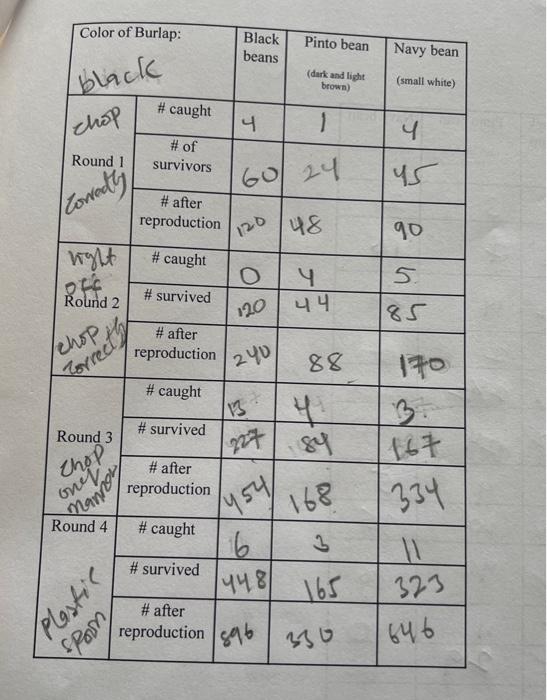 Color of Burlap: Black beans Pinto bean (dark and light brown) Navy bean (small white)
black
chop # caught 4 1 4
Round 1 # of survivors 60 24 45
correctly # after reproduction 120 48 90
light off # caught 0 4 5
Round 2 # survived 120 44 85
chop correctly # after reproduction 240 88 170
# caught 13 4 3
Round 3 # survived 227 84 167
chop one # after reproduction 454 168 334
Round 4 # caught 6 3 11
# survived 448 165 323
plastic spoon # after reproduction 896 330 646